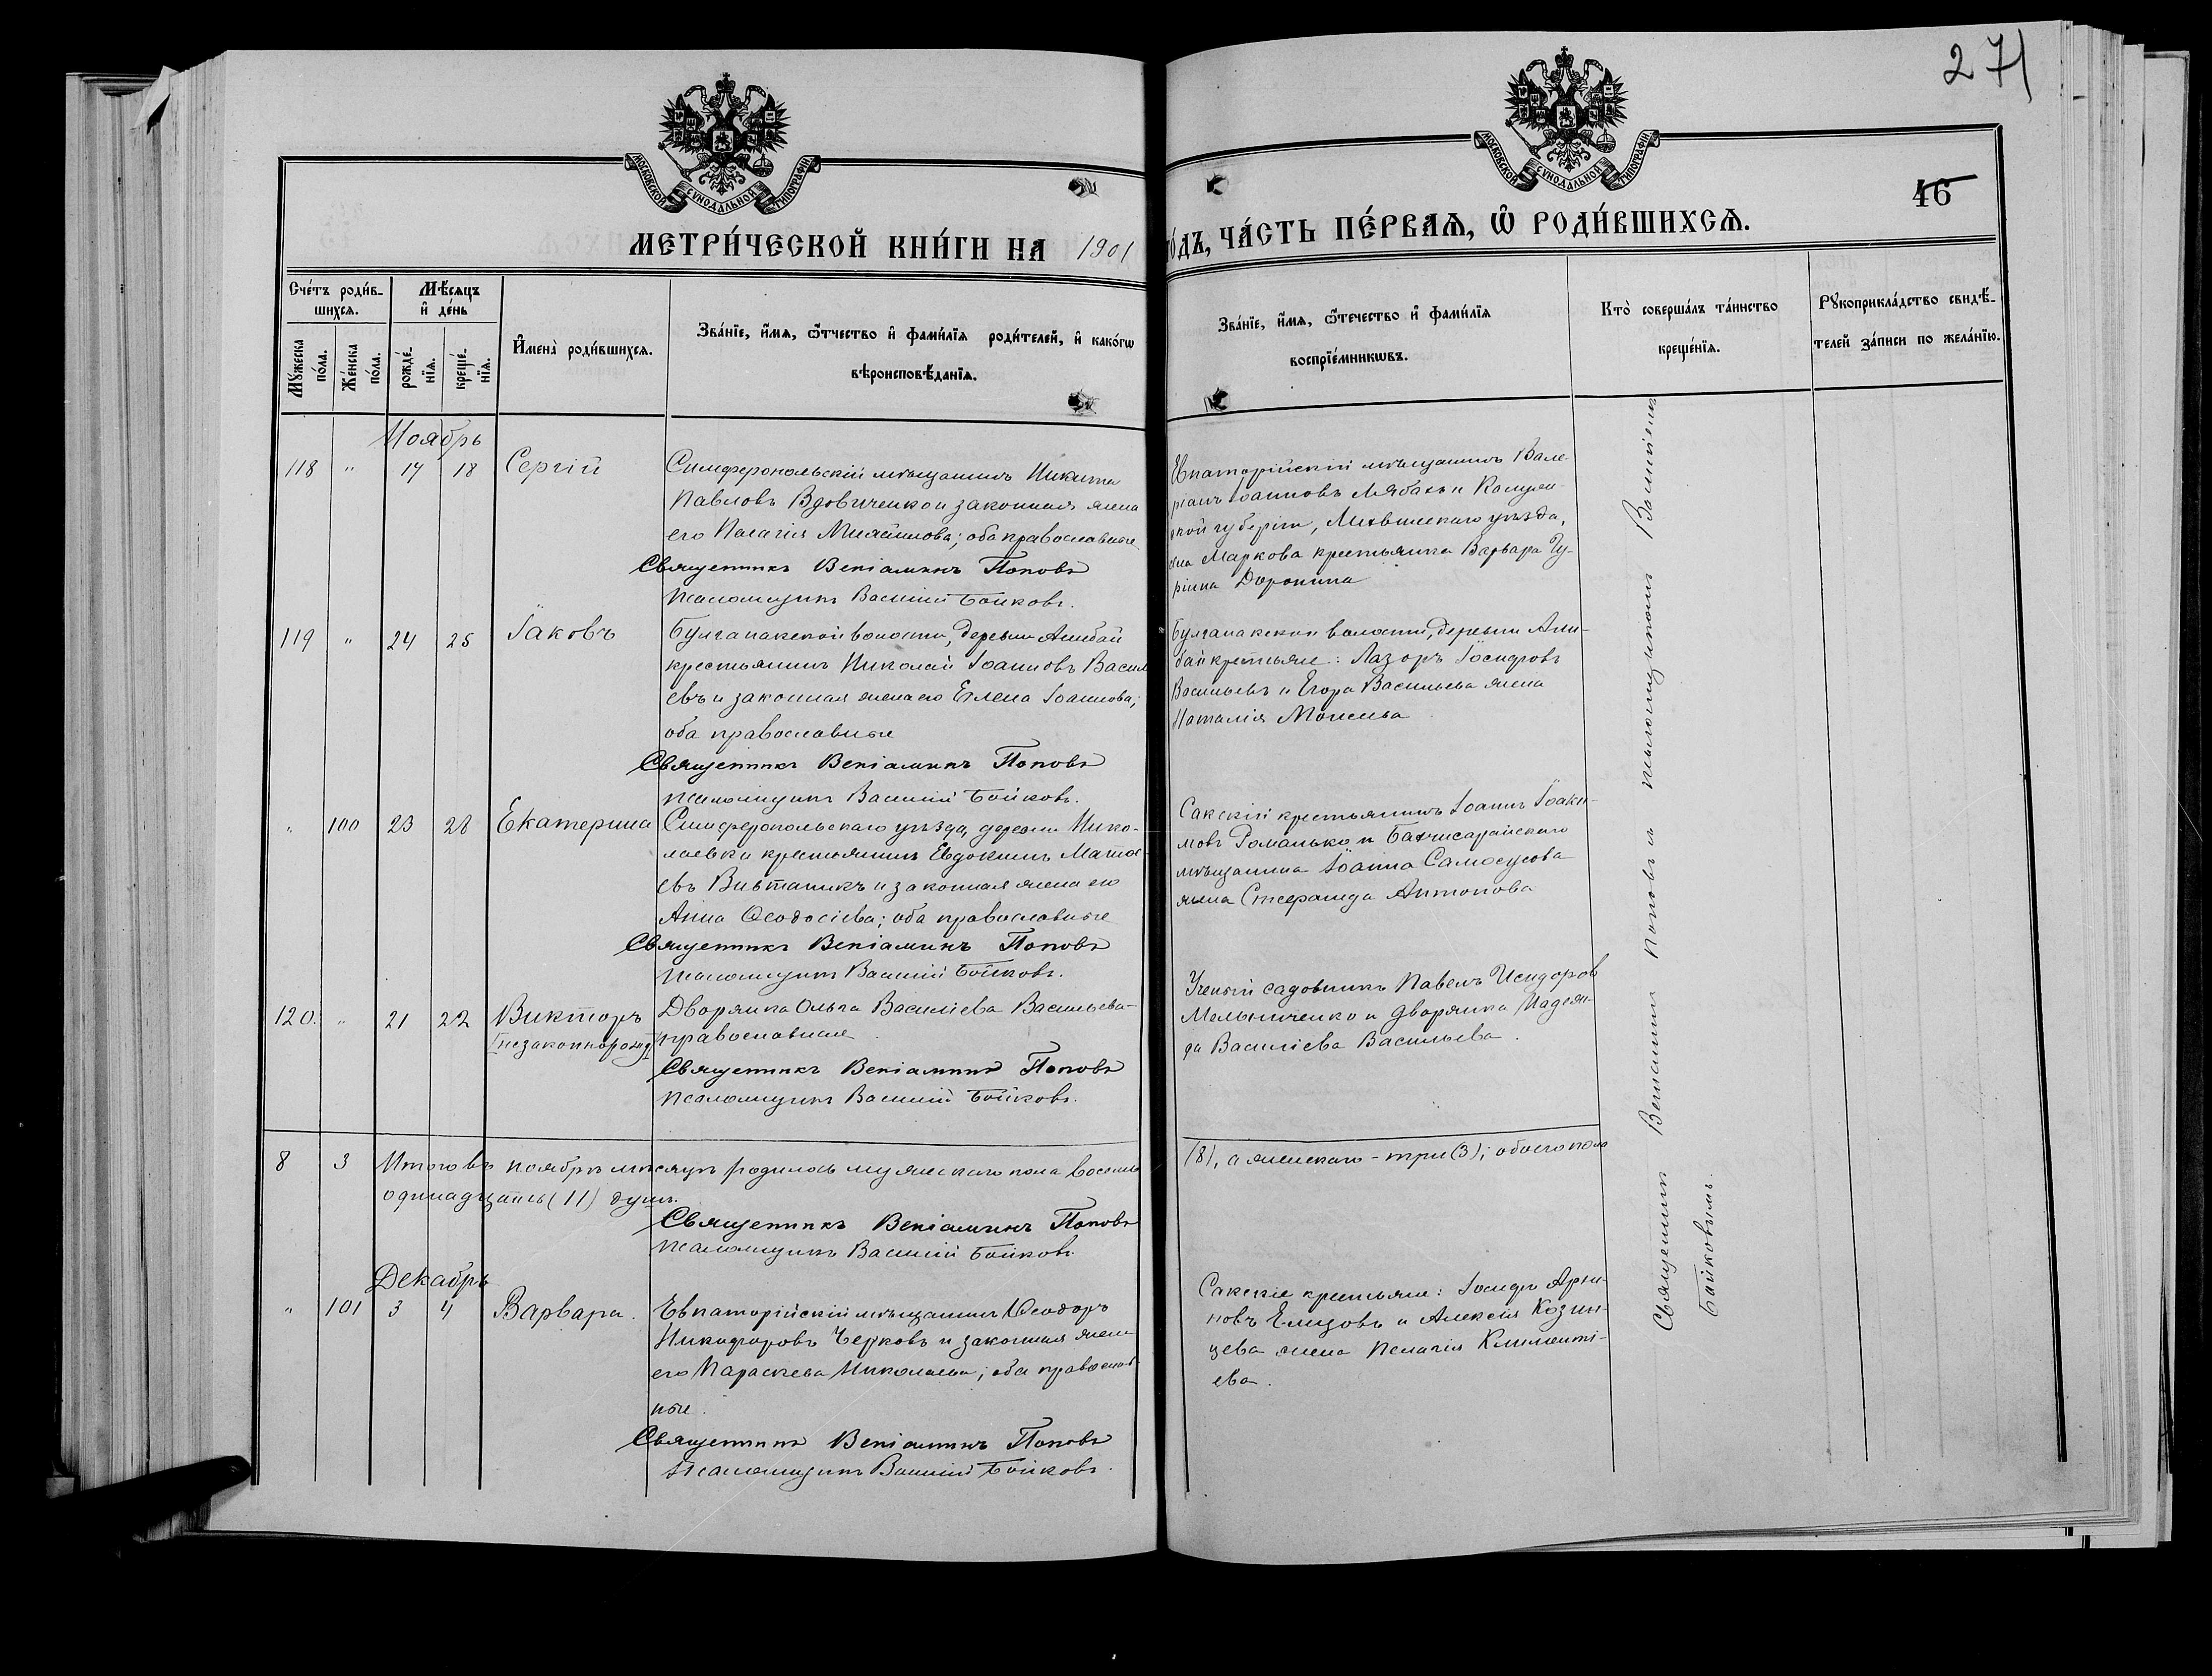 271
МОСКОВСКОЙ СУНОДАЛЬНОЙ ТИПОГРАФІИ
МОСКОВСКОЙ СУНОДАЛЬНОЙ ТИПОГРАФІИ
46
МЕТРИ́ЧЕСКОЙ КНИ́ГИ НА 1901
ГО́ДЪ, ЧА́СТЬ ПЕ́РВАѦ, Ѽ РОДИ́ВШИХСѦ.
Сче́тъ роди́в-
шихсѧ.
Мꙋ́жеска
по́ла.
Же́нска
по́ла.
Мѣ́сѧцъ
и҆ де́нь
рожде́-
нїѧ.
креще́-
нїѧ.
И҆мена̀ роди́вшихсѧ.
Зва́нїе, и҆́мѧ, ѻ҆́тчество и҆ фами́лїѧ роди́телей, и҆ како́гѡ
вѣроисповѣ́данїѧ.
Зва́нїе, и҆́мѧ, ѻ҆́течество и҆ фами́лїѧ
воспрїе́мникѡвъ.
Кто̀ соверша́лъ та́инство
креще́нїѧ.
Рꙋкоприкла́дство свидѣ́-
телей за́писи по жела́нїю.
Ноябрь
118 " 17 18 Сергій
Симферопольскій мѣщанинъ Никита
Павловъ Вдовиченко и законная жена
его Пелагія; оба православные
Священникъ Веніаминъ Поповъ
Псаломщикъ Василій Бойковъ.
Евпаторійскій мѣщанинъ Вале-
ріанъ Іоанновъ и Калуж-
ской губерніи, Лихвинскаго уѣзда,
Маркова крестьянка Варвара Гу-
ріина Доронина
119 " 24 25 Іаковъ
Булганакской волости, деревни Ашбай
крестьянинъ Николай Іоанновъ Василь
евъ и законная жена его Елена Іоаннова;
оба православные
Священникъ Веніаминъ Поповъ
Псаломщикъ Василій Бойковъ.
Булганакской волости, деревни Аш-
бай крестьяне: Лазорь Іосифовъ
Васильевъ и Егора Васильева жена
Наталія Моисеева
" 100 23 28 Екатерина
Симферопольскаго уѣзда, деревни Нико-
лаевки крестьянинъ Евдокимъ Матѳе-
евъ и законная жена его
Анна Ѳеодосіева; оба православные
Священникъ Веніаминъ Поповъ
Псаломщикъ Василій Бойковъ.
Сакскій крестьянинъ Іоаннъ Іоаки-
мовъ Романько и Бахчисарайскаго
мѣщанина Іоанна Самосусова
жена Стефанида Антонова
120. " 21 22 Викторъ
[незаконнорожд]
Дворянка Ольга Василіева Васильева-
православная
Священникъ Веніаминъ Поповъ
Псаломщикъ Василій Бойковъ.
Ученый садовникъ Павелъ Исидоров
Мельниченко и дворянка Надеж-
да Василіева Васильева.
8 3 Итого въ ноябрѣ мѣсяцѣ родилось мужескаго пола восемь
(8), а женскаго - три (3); обоего пола
одинадцать (11) душъ.
Священникъ Веніаминъ Поповъ
Псаломщикъ Василій Бойковъ
Декабрь
" 101 3 4 Варвара.
Евпаторійскій мѣщанинъ Ѳеодоръ
Никифоровъ Черковъ и законная жена
его Параскева Николаева; оба православ-
ные.
Священникъ Веніаминъ Поповъ
Псаломщикъ Василій Бойковъ.
Сакскіе крестьяне: Іосифъ
Елизовъ и Алексія Козин-
цева жена Пелагія Климентi-
ева.
Священникъ Веніаминъ Поповъ и псаломщикомъ Василіемъ
Бойковымъ